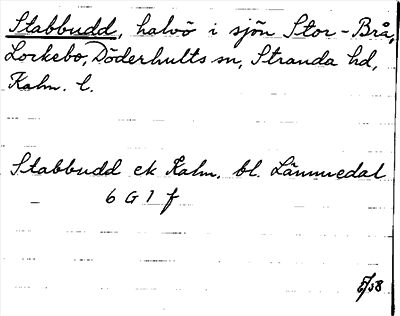 Stabbudd, halvö i sjön Stor-Brå,
Lockebo, Döderhults sn, Stranda hd,
Kalm. l.
Stabbudd ek Kalm. bl. Lämmedal
6 G 1 f
5/58